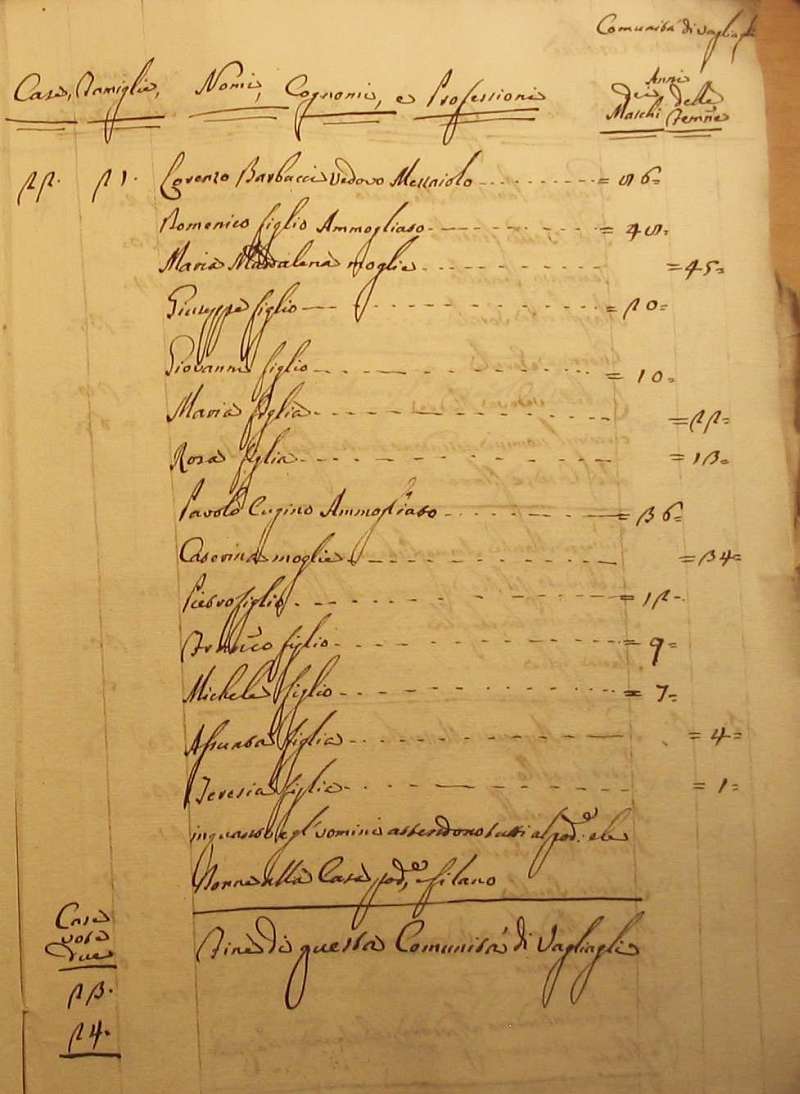 Comunità di Vagliagli
Case, Famiglie, Nomi, Cognomi, e Professioni Anni
dei Maschi delle Femne
22. 21. Lorenzo Barbacci Vedovo Mezzaiolo = 86=
Domenico figlio Ammogliato = 48=
Maria Maddalena moglie =45=
Giuseppe figlio = 20=
Giovanni figlio = 10=
Maria figlia =22=
Rosa figlia =13=
Pavolo Cugino Ammogliato = 36=
Caterina moglie =34=
Pietro figlio = 12=
Franco figlio = 9=
Michele figlio = 7=
Assunta figlia =4=
Teresia figlia =1=
inquanto agl'uomini attendono tutti al pod.e e le
Donne alla Casa pod.e e filano
Case
vote
due
Fine di questa Comunità di Vagliagli
23.
24.